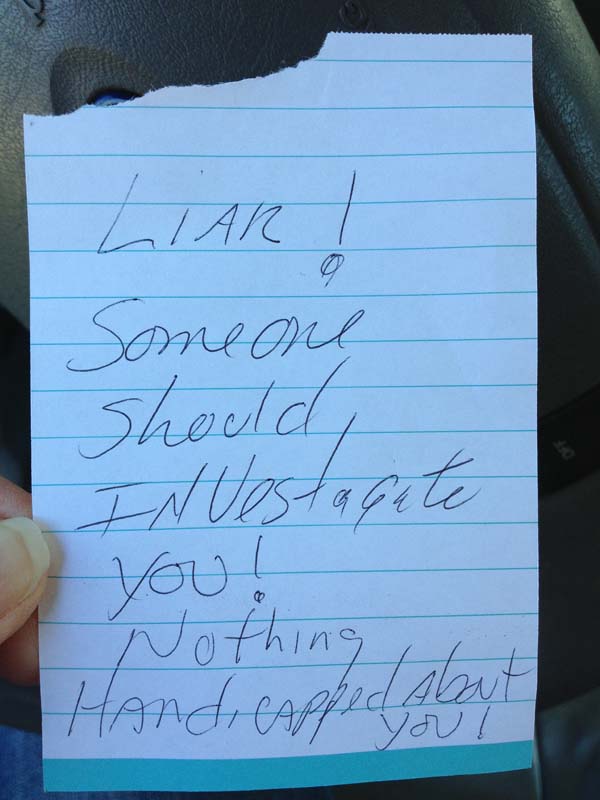 LIAR!
Someone
should
INVestagate
you!
Nothing
HANdicAPPed About
you!
OFF